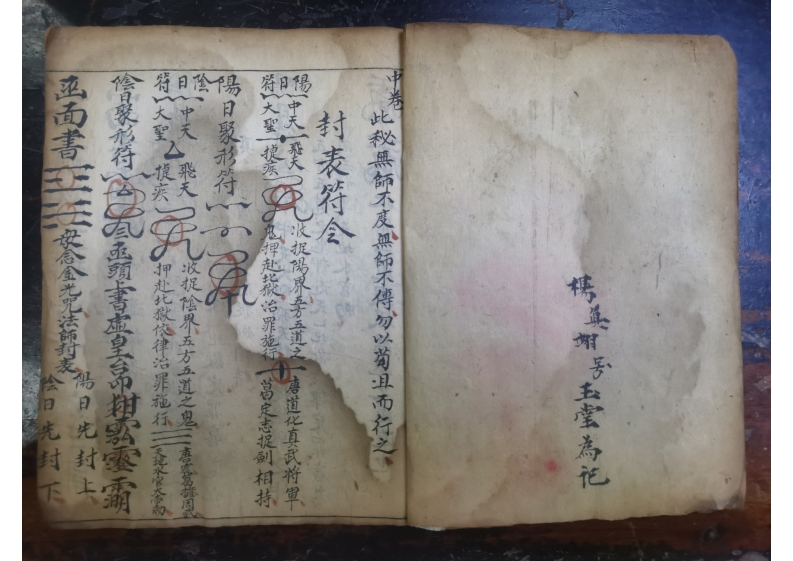 中卷
此秘無師不度無師不傳勿以苟且而行之
封表符令
陽日符
中天 飛天 收捉陽界五方五道之 唐道化真武將軍
大聖 捷疾 鬼押赴北獄治罪施行 葛定志捉劍相持
陽日聚形符
陰日符
中天 飛天 收捉陰界五方五道之鬼
大聖 捉疾 押赴北獄依律治罪施行
陰日聚形符 函頭上書虛皇台帝
函面書 安念金光咒法師封表
陽日先封上
陰日先封下
楊 玉堂為記